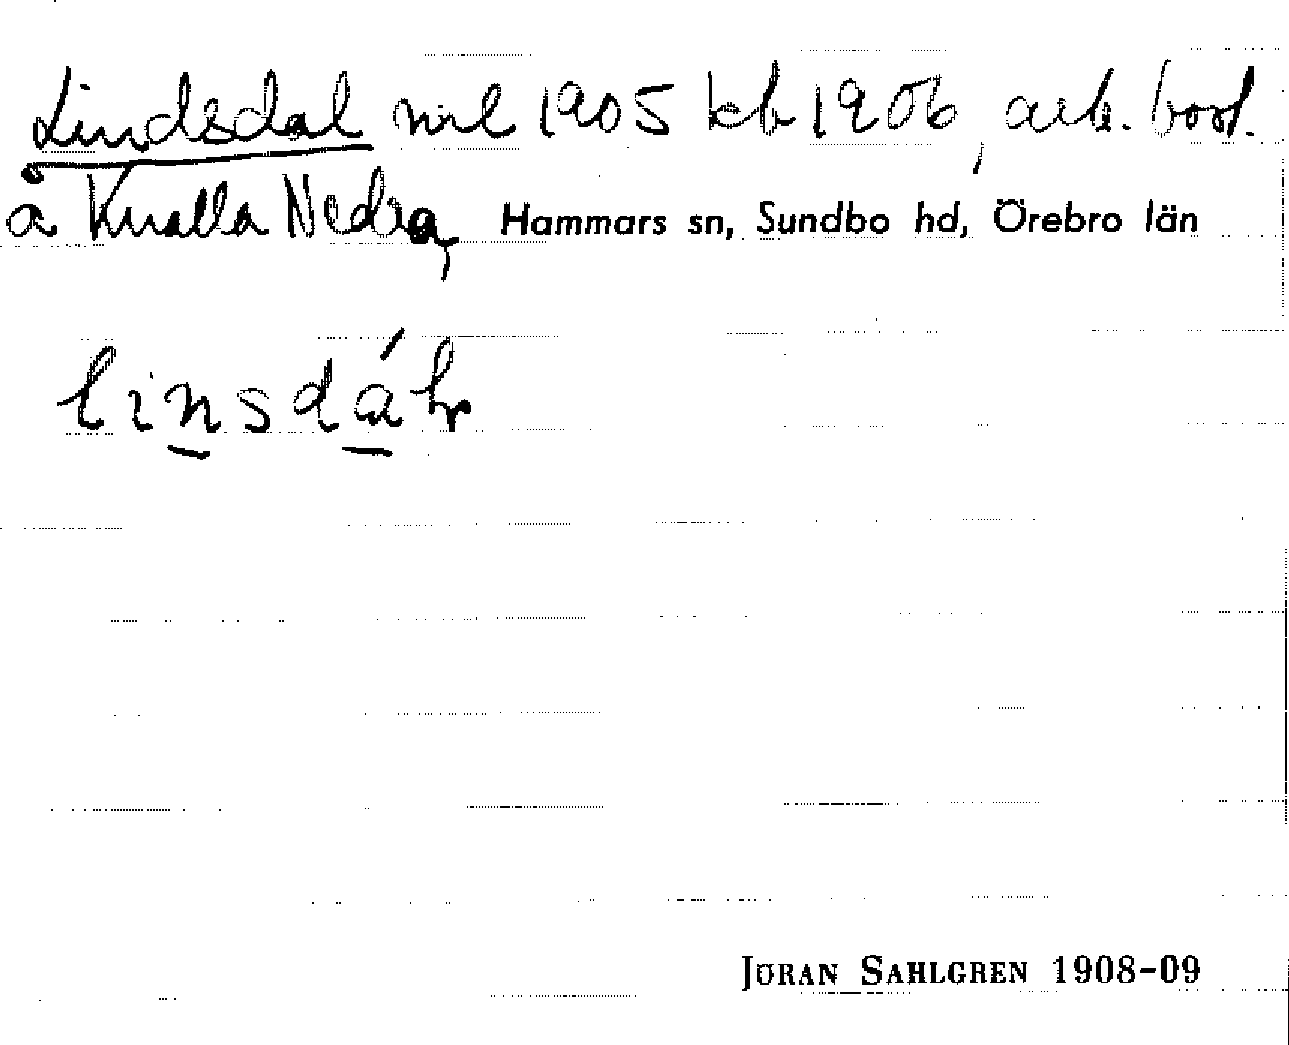 Lindsdal ml 1905 kb 1906, arb. bost.
å Knalla Nedra, Hammars sn, Sundbo hd, Örebro län
linsdáh
JÖRAN SAHLGREN 1908-09